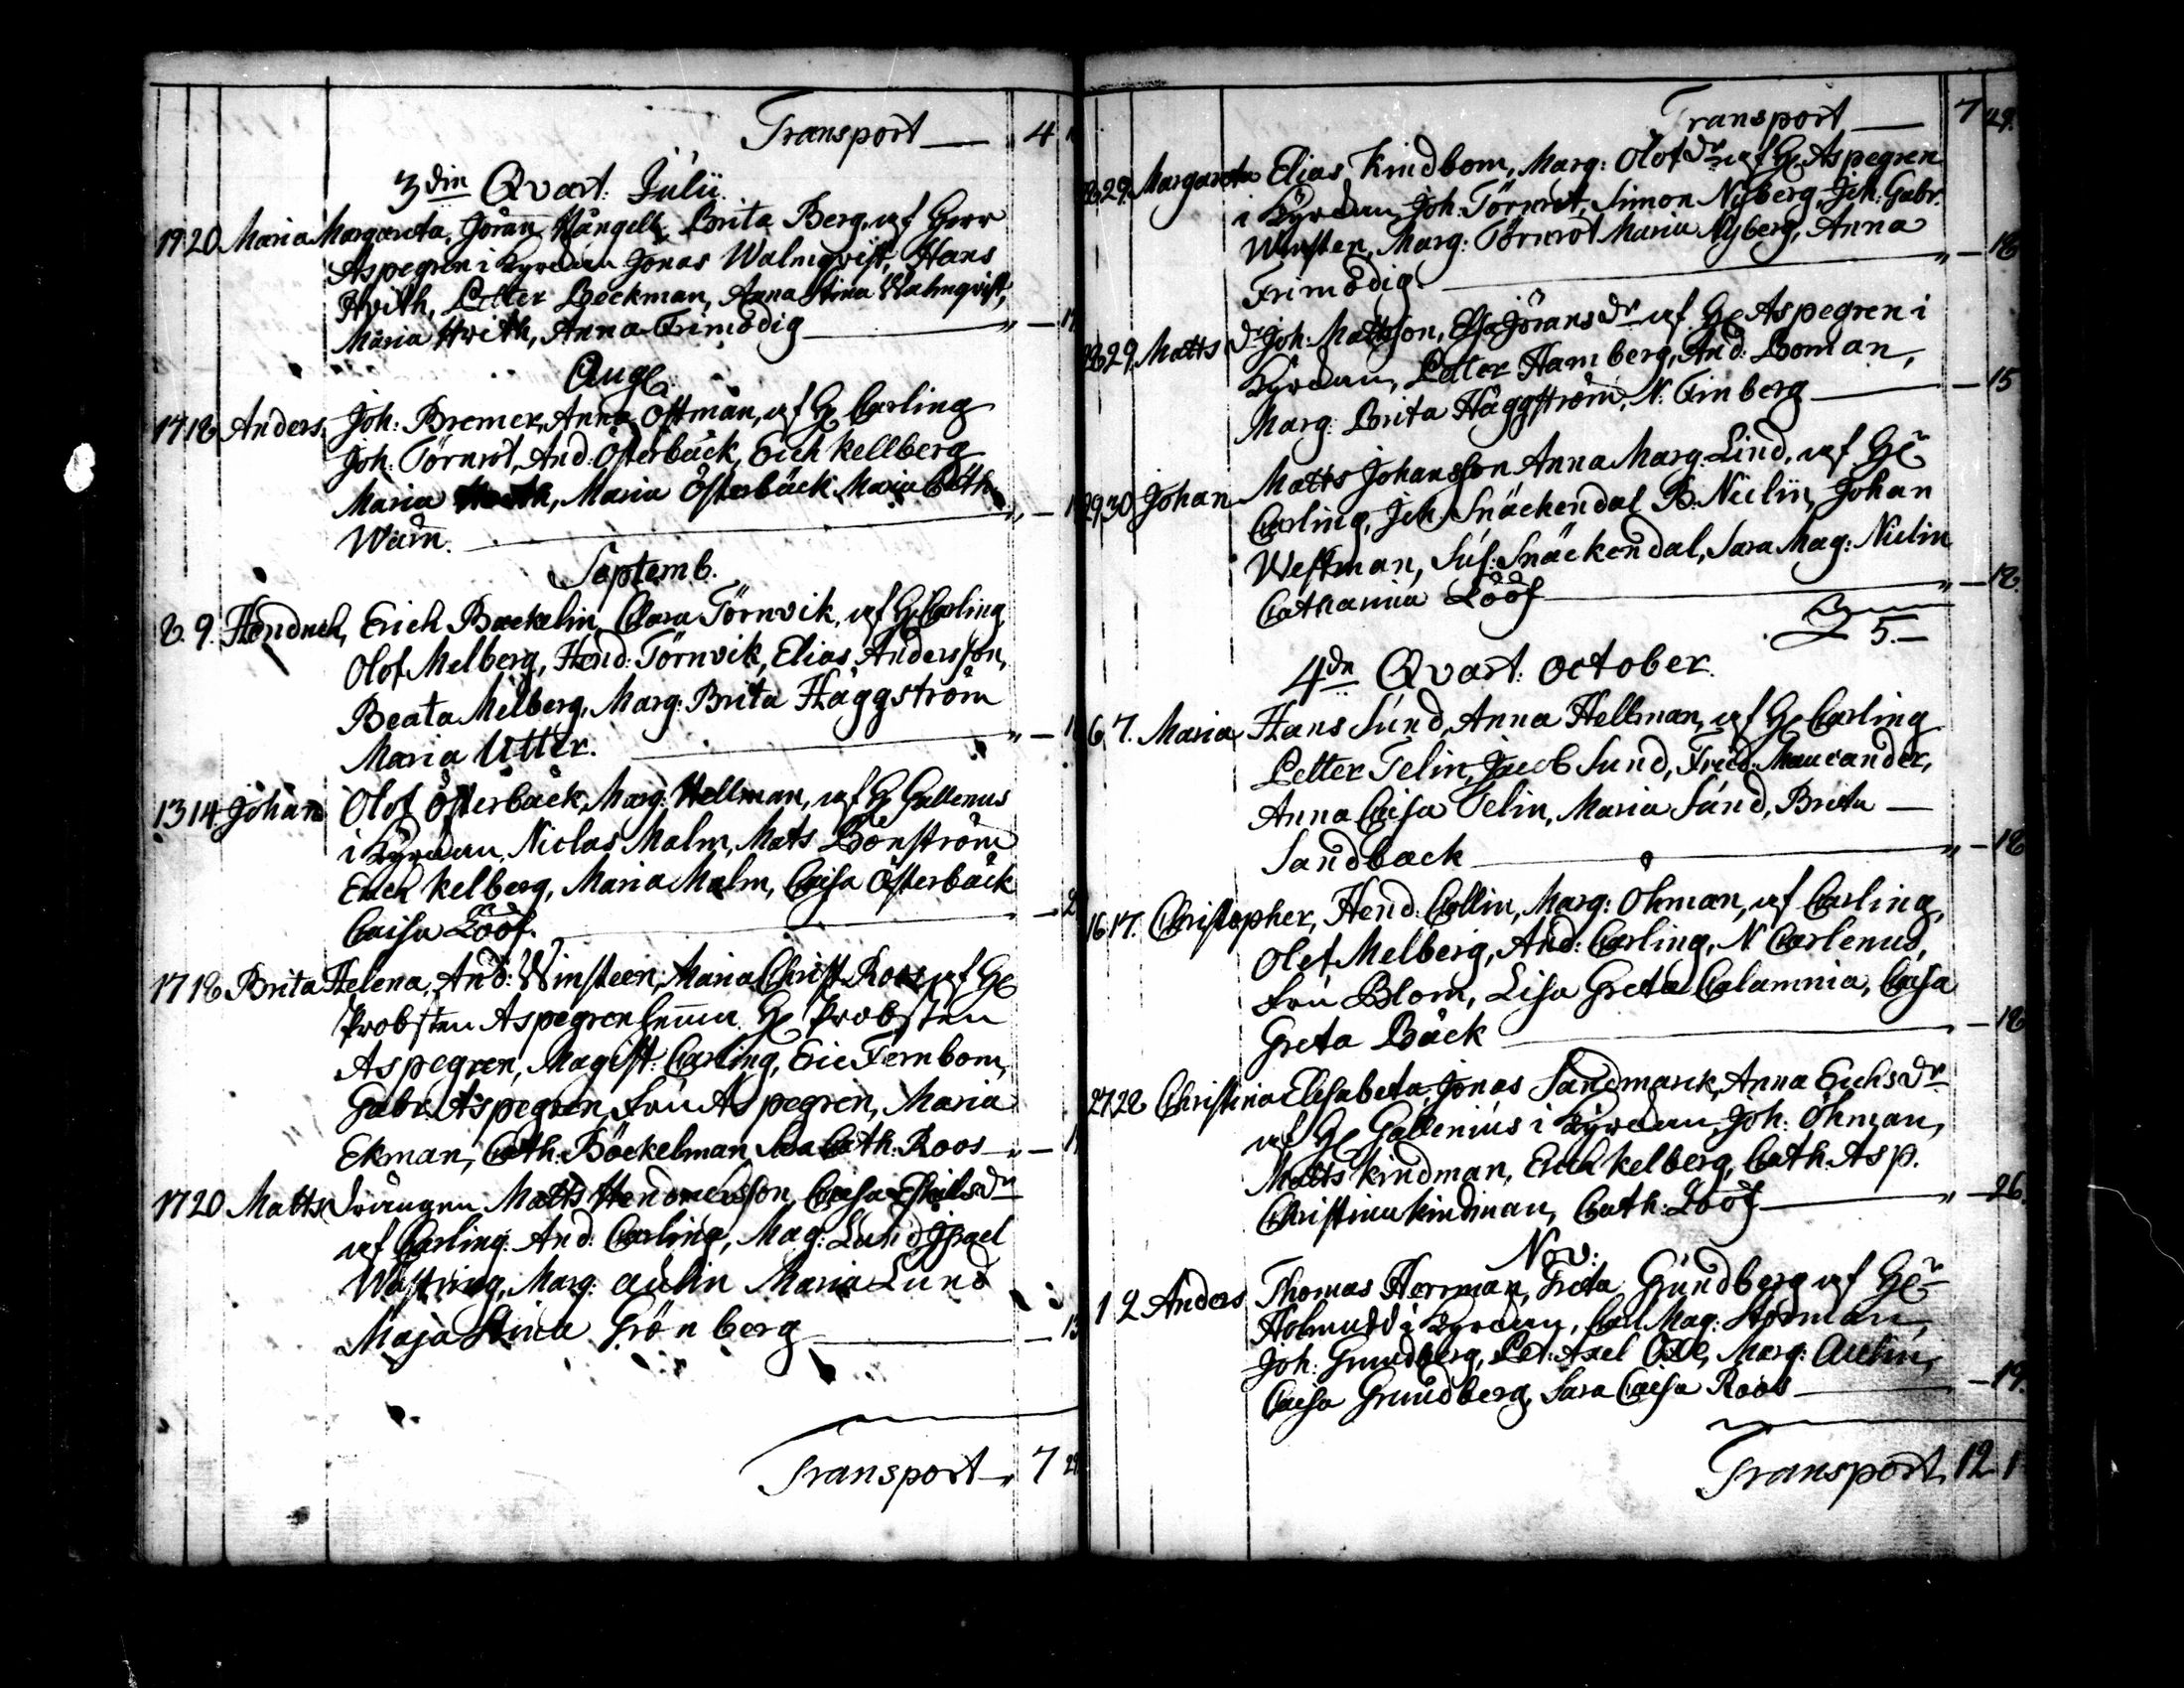 Transport — 4
3din Qvart: Julii.
19 20 Maria Margareta, Jöran Wångell, Brita Berg, af Herr
Aspegren i kyrckan Jonas Walmqvist, Hans
Hvith, Petter Beckman, Anna Stina Walmqvist,
Maria Hvith, Anna Frimodig
Aug:
17 18 Anders Joh: Bremer, Anna Ostman, af H: Carling
Joh: Törnrot, And: Österbäck, Erich kellberg
Maria, Maria Österbäck Maria Cath:
Wärn.
Septemb.
8. 9. Hendrich, Erich Backelin, Clara Törnvik, af H: Carling,
Olof Melberg, Hend: Törnvik, Elias Andersson,
Beata Melberg, Marg: Brita Häggström
Maria Utter.
13 14 Johan Olof Österbäck, Marg: Hellman, af H: Gallenius
i kyrckan, Niclas Malm, Mats Bönström
Erich kelberg, Maria Malm, Caisa Österbäck
Caisa Lööf.
17 18 Brita Helena, And: Winsteen, Maria Christ: Roos af H:
Probsten Aspegren hemma. H: Probsten
Aspegren, Magist: Carling, Eric Fernbom,
Gabr: Aspegren, fru Aspegren, Maria
Ekman, Cath: Böckelman, Sara Cath: Roos
17 20 Matts Drängen Matts Hendrichsson, Caisa Eskilsdr
af Carling. And: Carling, Mag: Lund Israel
Wästring, Marg: Aulin Maria Lund
Maja Stina Grönberg
Transport 7
Transport — 7 29.
28 29. Margareta Elias Kindbom, Marg: Olofdr af H: Aspegren
i kyrckan, Joh: Törnrot, Simon Nyberg, Joh: Gabr:
Winsten, Marg: Törnrot Maria Nyberg, Anna
Frimodig. — 18
28 29. Matts Dr Joh: Mattsson, Elsa Jöransdr af H: Aspegren i
kyrckan, Petter Hamberg, And: Boman,
Marg: Brita Häggström, N: Finberg — 15
29 30 Johan Matts Johansson, Anna Marg: Lind, af Hr
Carling, Joh: Snäckendal B: Niclin, Johan
Westman, Sus: Snäckendal, Sara Mag: Niclin
Catharina Lööf — 18.
5. —
4de Qvart: October.
6 7. Maria Hans Sund, Anna Hellman, af H: Carling
Petter Telin, Jacob Sund, Fried:
Anna Caisa Telin, Maria Sund, Brita
Sandback — 18
16 17. Christopher, Hend: Collin, Marg: Ohman, af Carling,
Olof Melberg, And: Carling, N Carlenius,
fru Blom, Lisa Greta Calamnia, Caisa
Greta Bäck — 18
27 28 Christina Elisabeta, Jonas Sandmarck, Anna Erichsdr
af H: Gallenius i kyrckan, Joh: Öhman,
Matts kindman, Erich kelberg, Cath: Asp.
Christina kindman, Cath: Lööf — 26.
Nov:
1 2 Anders Thomas Herrman, Greta Grundberg af Hr
Holmudd i kyrckan, Carl Mag:
Joh: Grundberg, Pet: Axel, Marg: Aulin,
Caisa Grundberg, Sara Caisa Roos — 19.
Transport 12 1